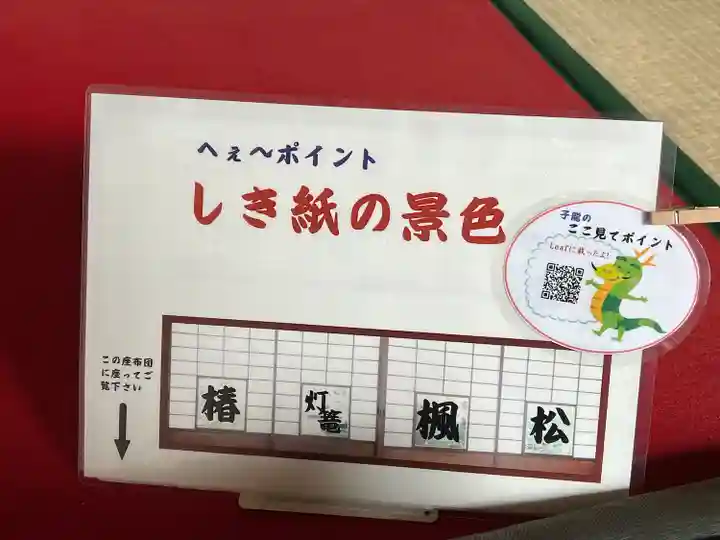 へぇ〜ポイント
しき紙の景色
子龍の
ここ見てポイント
Leafに載ったよ!
この座布団
に座ってご
覧下さい
椿
灯篭
楓
松